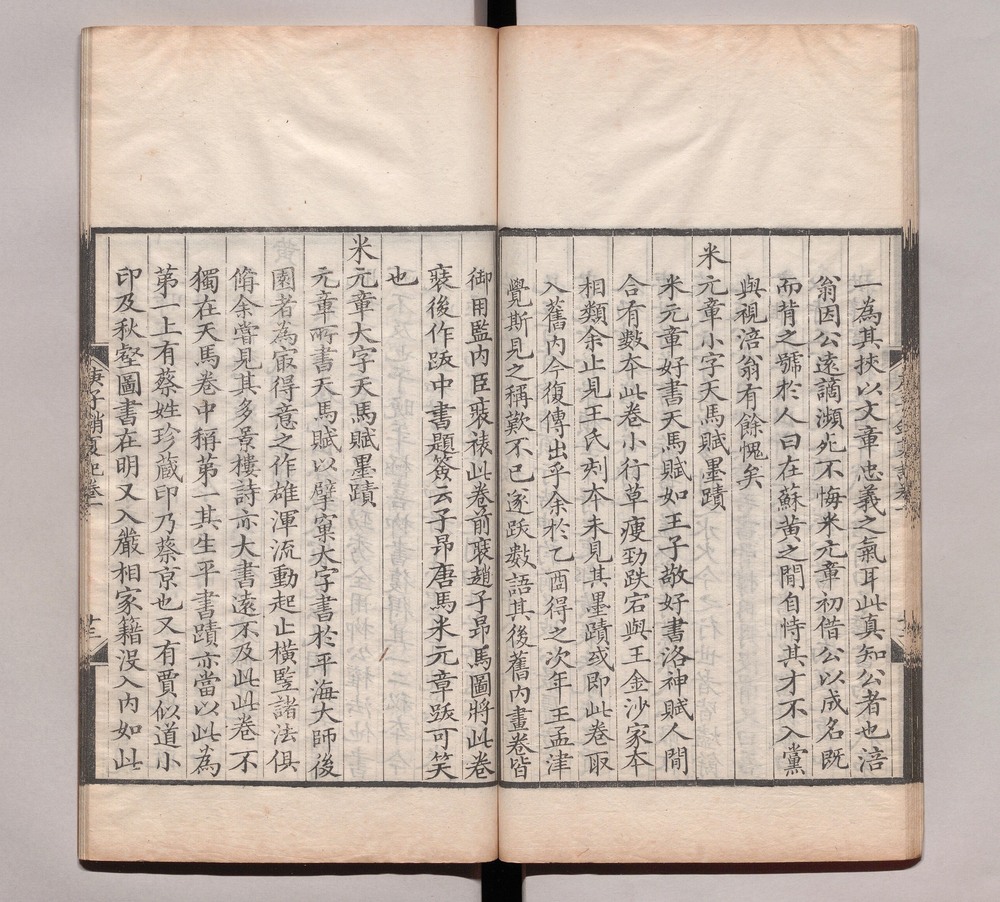 一為其挾以文章忠義之氣耳此真知公者也涪
翁因公遠謫瀕死不悔米元章初借公以成名旣
而背之號於人曰在蘇黃之間自恃其才不入黨
與視涪翁有餘愧矣
米元章小字天馬賦墨蹟
米元章好書天馬賦如王子敬好書洛神賦人間
合有數本此卷小行草瘦勁跌宕與王金沙家本
相類余止見王氏刻本未見其墨蹟或即此卷取
入舊內今復傳出乎余於乙酉得之次年王孟津
覺斯見之稱歎不已遂跋數語其後舊內畫卷皆
御用監內臣裱褙此卷前裱趙子昂馬圖將此卷
裱後作跋中書題簽云子昂唐馬米元章跋可笑
也
米元章大字天馬賦墨蹟
元章所書天馬賦以擘窠大字書於平海大師後
園者為㝡得意之作雄渾流動起止橫豎諸法俱
備余嘗見其多景樓詩亦大書遠不及此此卷不
獨在天馬卷中稱第一其生平書蹟亦當以此為
第一上有蔡姓珍藏印乃蔡京也又有賈似道小
印及秋壑圖書在明又入嚴相家籍沒入內如此
庚子銷夏記卷一
廿三